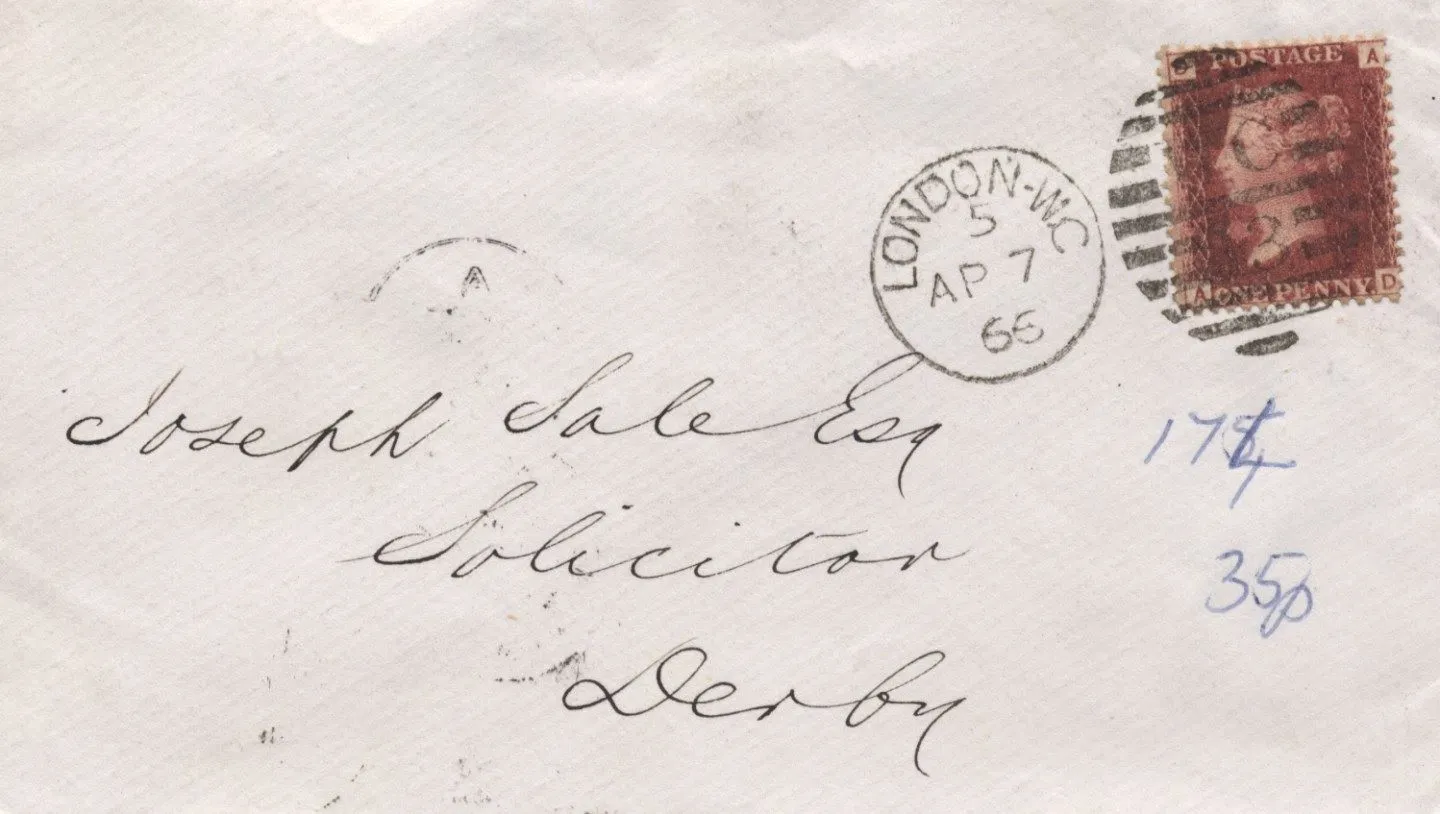 POSTAGE A
LONDON-W.C
5
AP 7
66
A ONE PENNY D
A
Joseph Sale Esq
Solicitor
Derby
35p